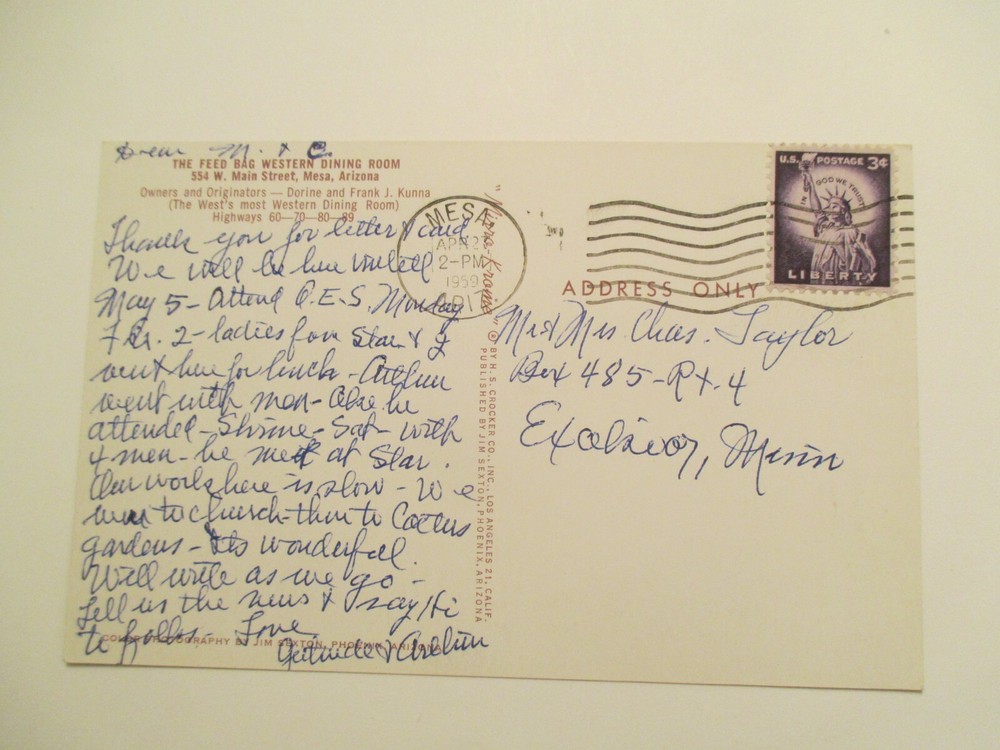 Dear M. & C.
THE FEED BAG WESTERN DINING ROOM
554 W. Main Street, Mesa, Arizona
Owners and Originators — Dorine and Frank J. Kunna
(The West's most Western Dining Room)
Highways 60—70—80—89
Thank you for letter & card
We will be here until
May 5 - Attend O.E.S. Monday
2 - ladies from Star & I
went here for lunch - Arthur
went with men - Also he
attended - Shrine - Sat - with
4 men - he met at Star.
Our work here is slow - We
went to church - then to Cactus
gardens - its wonderful.
Will write as we go -
Tell us the news & say Hi
to folks - Love
Gertrude & Arthur
COLOR PHOTOGRAPHY BY JIM SEXTON, PHOENIX, ARIZONA
"Mirro-Krome" ® BY H. S. CROCKER CO., INC., LOS ANGELES 21, CALIF.
PUBLISHED BY JIM SEXTON, PHOENIX, ARIZONA
MESA
APR 2
2-PM
1959
ARIZ
U.S. POSTAGE 3¢
IN GOD WE TRUST
LIBERTY
ADDRESS ONLY
Mr & Mrs Chas. Taylor
Box 485 - Rt. 4
Excelsior, Minn